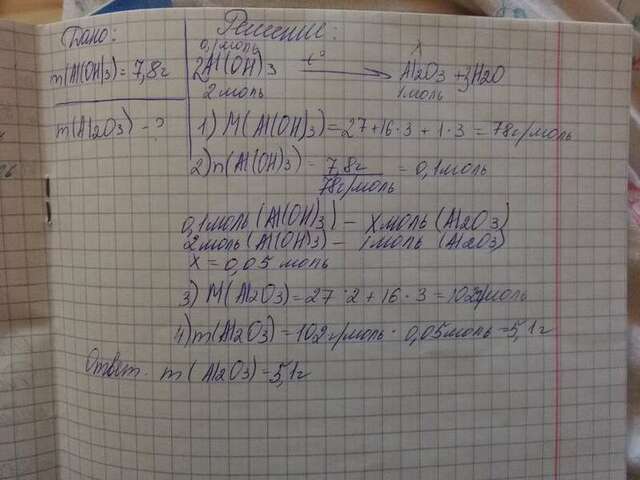 Дано:
m(Al(OH)3) = 7,8г
m(Al2O3) - ?
Решение:
0,1моль x
2Al(OH)3 —t°→ Al2O3 + 3H2O
2моль 1моль
1) M(Al(OH)3) = 27+16·3 + 1·3 = 78г/моль
2) n(Al(OH)3) = 7,8г / 78г/моль = 0,1моль
0,1моль (Al(OH)3) – x моль (Al2O3)
2моль (Al(OH)3) – 1моль (Al2O3)
x = 0,05 моль
3) M(Al2O3) = 27·2 + 16·3 = 102г/моль
4) m(Al2O3) = 102г/моль · 0,05моль = 5,1г
Ответ. m(Al2O3) = 5,1г